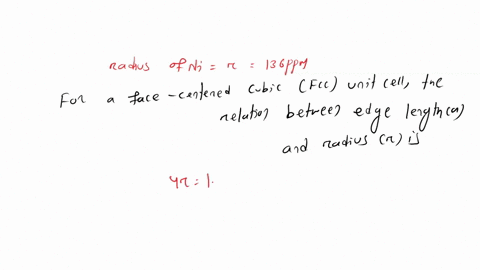 radius of Ni = r = 136ppm
For a face-centered cubic (Fcc) unit cell, the
relation between edge length(a)
and radius (r) is
4r = 1.